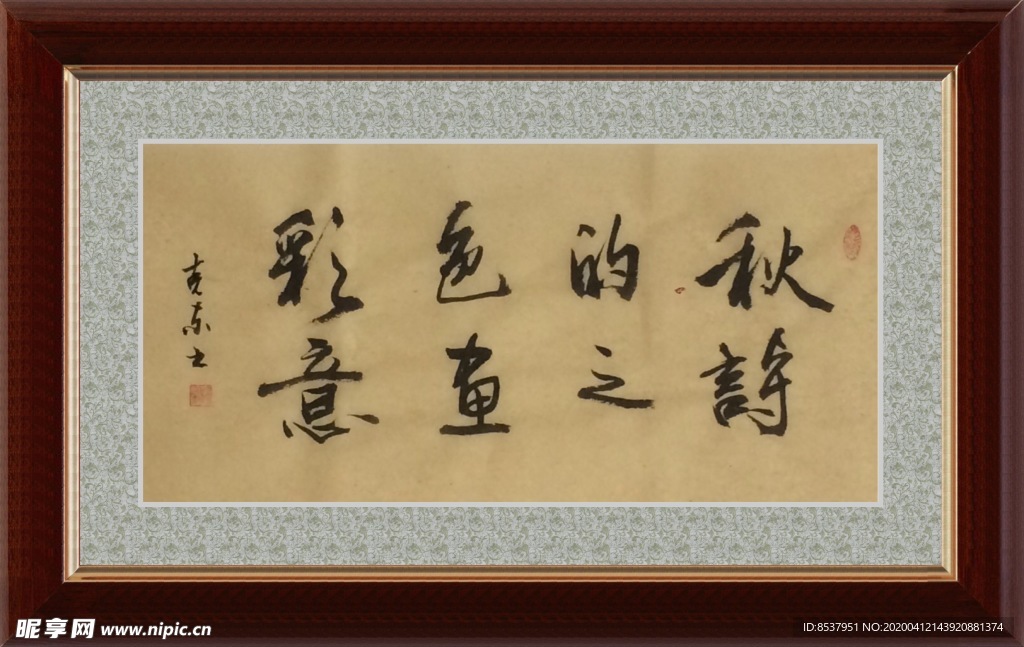 秋的色彩
詩之畫意
克东书
昵享网 www.nipic.cn
ID:8537951 NO:20200412143920881374